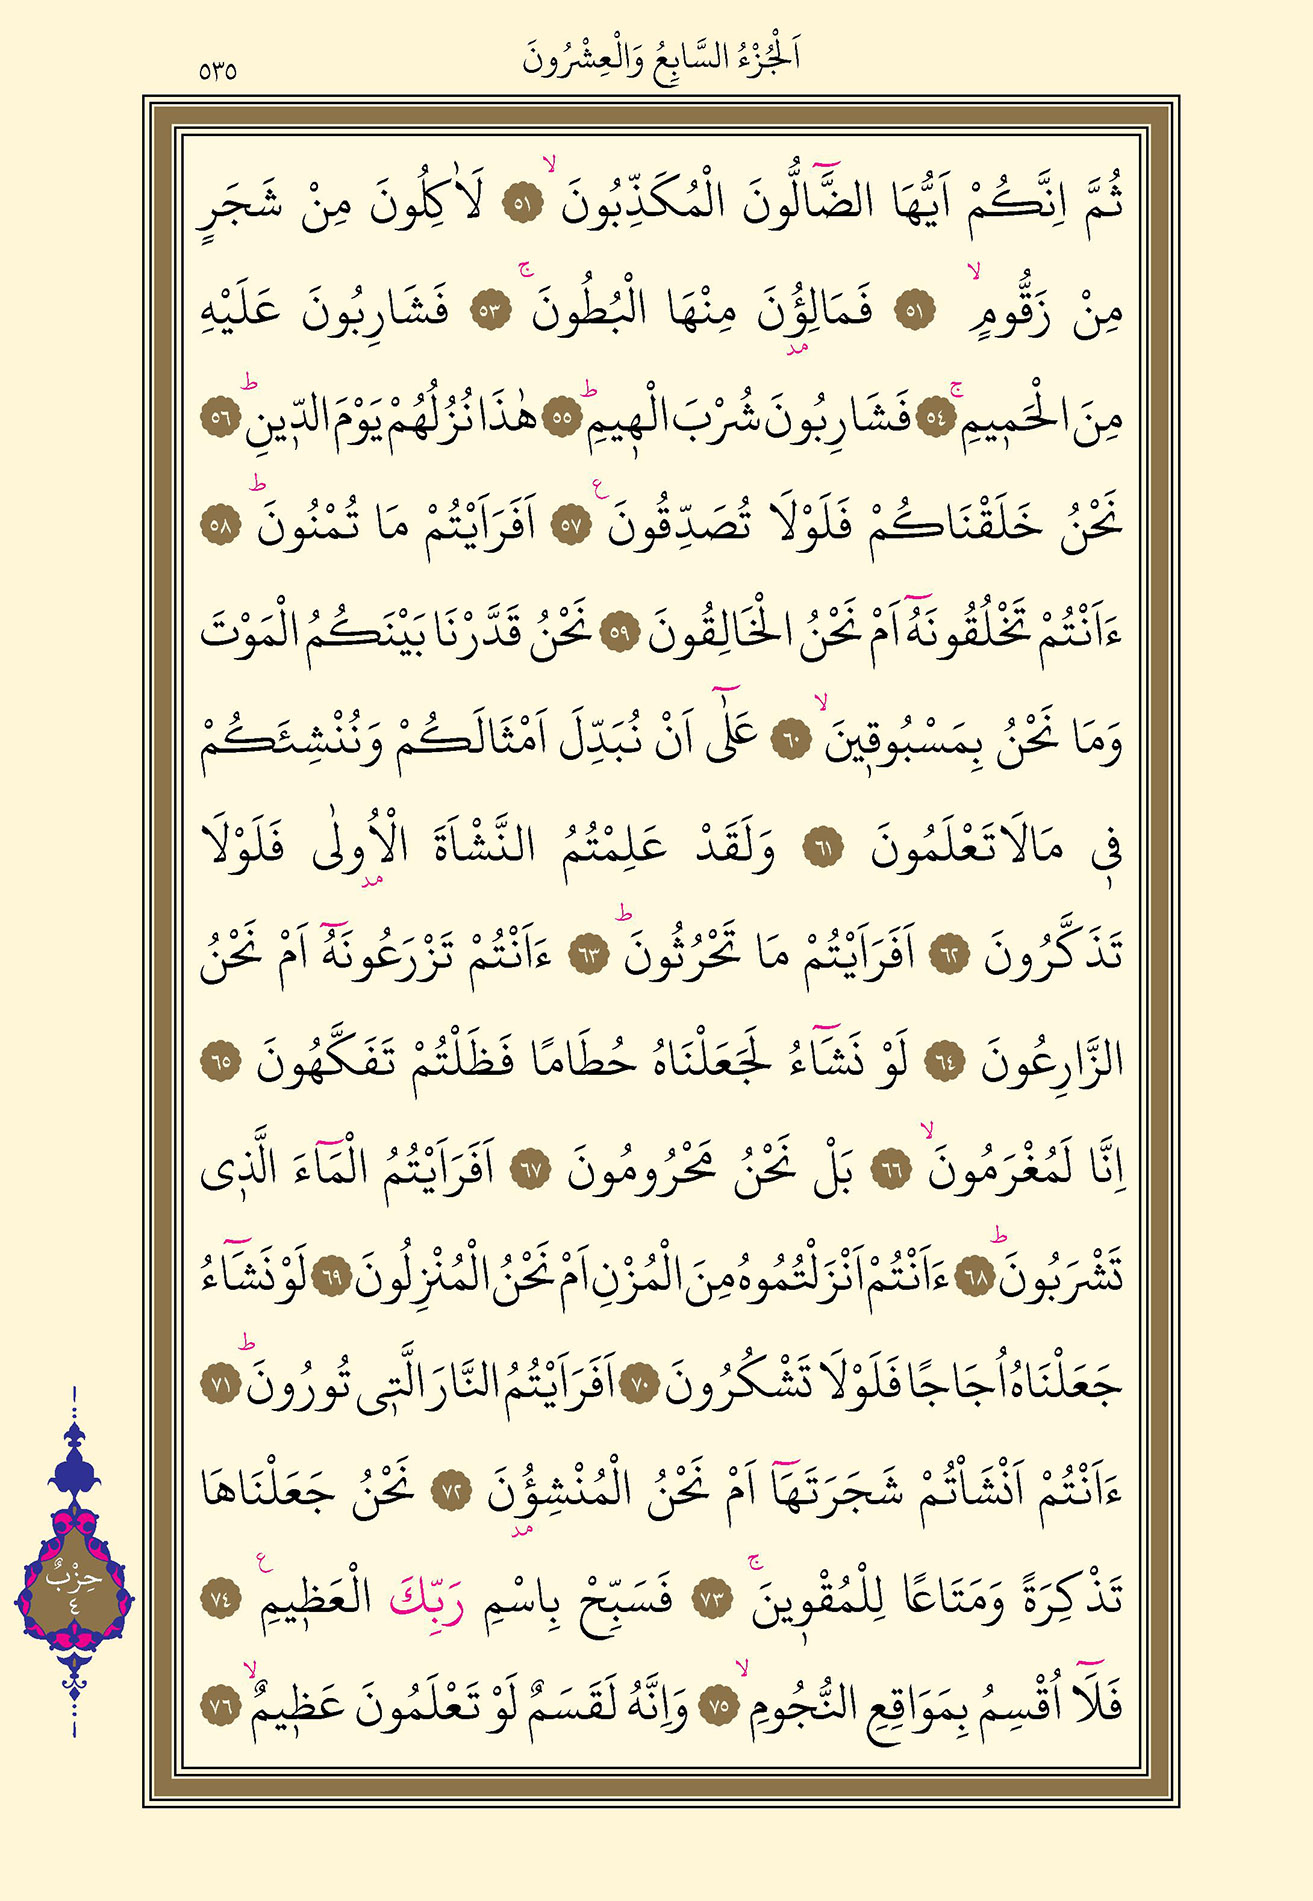 اَلْجُزْءُ السَّابِعُ وَالْعِشْرُونَ
٥٣٥
ثُمَّ اِنَّكُمْ اَيُّهَا الضَّٓالُّونَ الْمُكَذِّبُونَۙ ٥١ لَاٰكِلُونَ مِنْ شَجَرٍ
مِنْ زَقُّومٍۙ ٥١ فَمَالِؤُ۫نَ مِنْهَا الْبُطُونَۚ ٥٣ فَشَارِبُونَ عَلَيْهِ
مِنَ الْحَم۪يمِۚ ٥٤ فَشَارِبُونَ شُرْبَ الْه۪يمِۜ ٥٥ هٰذَا نُزُلُهُمْ يَوْمَ الدّ۪ينِۜ ٥٦
نَحْنُ خَلَقْنَاكُمْ فَلَوْلَا تُصَدِّقُونَ ع ٥٧ اَفَرَاَيْتُمْ مَا تُمْنُونَۜ ٥٨
ءَاَنْتُمْ تَخْلُقُونَهُٓ اَمْ نَحْنُ الْخَالِقُونَ ٥٩ نَحْنُ قَدَّرْنَا بَيْنَكُمُ الْمَوْتَ
وَمَا نَحْنُ بِمَسْبُوق۪ينَۙ ٦٠ عَلٰٓى اَنْ نُبَدِّلَ اَمْثَالَكُمْ وَنُنْشِئَكُمْ
ف۪ي مَالَا تَعْلَمُونَ ٦١ وَلَقَدْ عَلِمْتُمُ النَّشْاَةَ الْاُو۫لٰى فَلَوْلَا
تَذَكَّرُونَ ٦٢ اَفَرَاَيْتُمْ مَا تَحْرُثُونَۜ ٦٣ ءَاَنْتُمْ تَزْرَعُونَهُٓ اَمْ نَحْنُ
الزَّارِعُونَ ٦٤ لَوْ نَشَٓاءُ لَجَعَلْنَاهُ حُطَامًا فَظَلْتُمْ تَفَكَّهُونَ ٦٥
اِنَّا لَمُغْرَمُونَۙ ٦٦ بَلْ نَحْنُ مَحْرُومُونَ ٦٧ اَفَرَاَيْتُمُ الْمَٓاءَ الَّذ۪ى
تَشْرَبُونَۜ ٦٨ ءَاَنْتُمْ اَنْزَلْتُمُوهُ مِنَ الْمُزْنِ اَمْ نَحْنُ الْمُنْزِلُونَ ٦٩ لَوْ نَشَٓاءُ
جَعَلْنَاهُ اُجَاجًا فَلَوْلَا تَشْكُرُونَ ٧٠ اَفَرَاَيْتُمُ النَّارَ الَّت۪ى تُورُونَۜ ٧١
ءَاَنْتُمْ اَنْشَاْتُمْ شَجَرَتَهَٓا اَمْ نَحْنُ الْمُنْشِؤُ۫نَ ٧٢ نَحْنُ جَعَلْنَاهَا
تَذْكِرَةً وَمَتَاعًا لِلْمُقْو۪ينَۚ ٧٣ فَسَبِّحْ بِاسْمِ رَبِّكَ الْعَظ۪يمِ ع ٧٤
فَلَٓا اُقْسِمُ بِمَوَاقِعِ النُّجُومِۙ ٧٥ وَاِنَّهُ لَقَسَمٌ لَوْ تَعْلَمُونَ عَظ۪يمٌۙ ٧٦
حِزْبٌ
٤